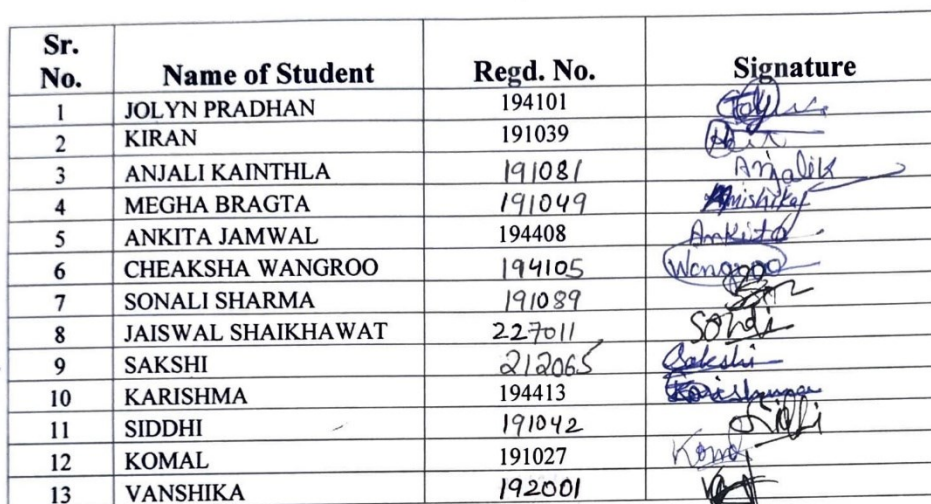 Sr. No. Name of Student Regd. No. Signature
1 JOLYN PRADHAN 194101
2 KIRAN 191039
3 ANJALI KAINTHLA 191081 Anjalik
4 MEGHA BRAGTA 191049
5 ANKITA JAMWAL 194408 Ankita
6 CHEAKSHA WANGROO 194105 Wangroo
7 SONALI SHARMA 191089
8 JAISWAL SHAIKHAWAT 227011
9 SAKSHI 212065 Sakshi
10 KARISHMA 194413 Karishma
11 SIDDHI 191042
12 KOMAL 191027 Komal
13 VANSHIKA 192001